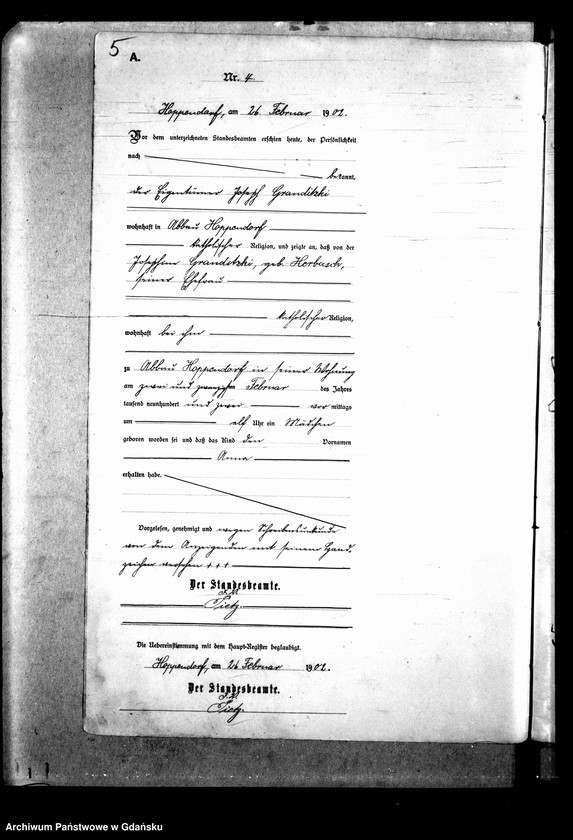 5
A.
Nr. 4.
Hoppendorf, am 26 Februar 1902.
Vor dem unterzeichneten Standesbeamten erschien heute, der Persönlichkeit
nach
bekannt,
der Eigentümer Joseph Granditzki
wohnhaft in Abbau Hoppendorf
katholischer Religion, und zeigte an, daß von der
Josephine Granditzki, geb. Horbasch,
seiner Ehefrau
katholischer Religion,
wohnhaft bei ihm
zu Abbau Hoppendorf in seiner Wohnung
am zwei und zwanzigsten Februar des Jahres
tausend neunhundert und zwei vor mittags
um elf Uhr ein Mädchen
geboren worden sei und daß das Kind den Vornamen
Anna
erhalten habe.
Vorgelesen, genehmigt und wegen Schreibensunkunde
von dem Anzeigenden mit seinem Hand-
zeichen versehen +++
Der Standesbeamte.
Tietz.
Die Uebereinstimmung mit dem Haupt-Register beglaubigt.
Hoppendorf, am 26 Februar 1902.
Der Standesbeamte.
Tietz.
Archiwum Państwowe w Gdańsku